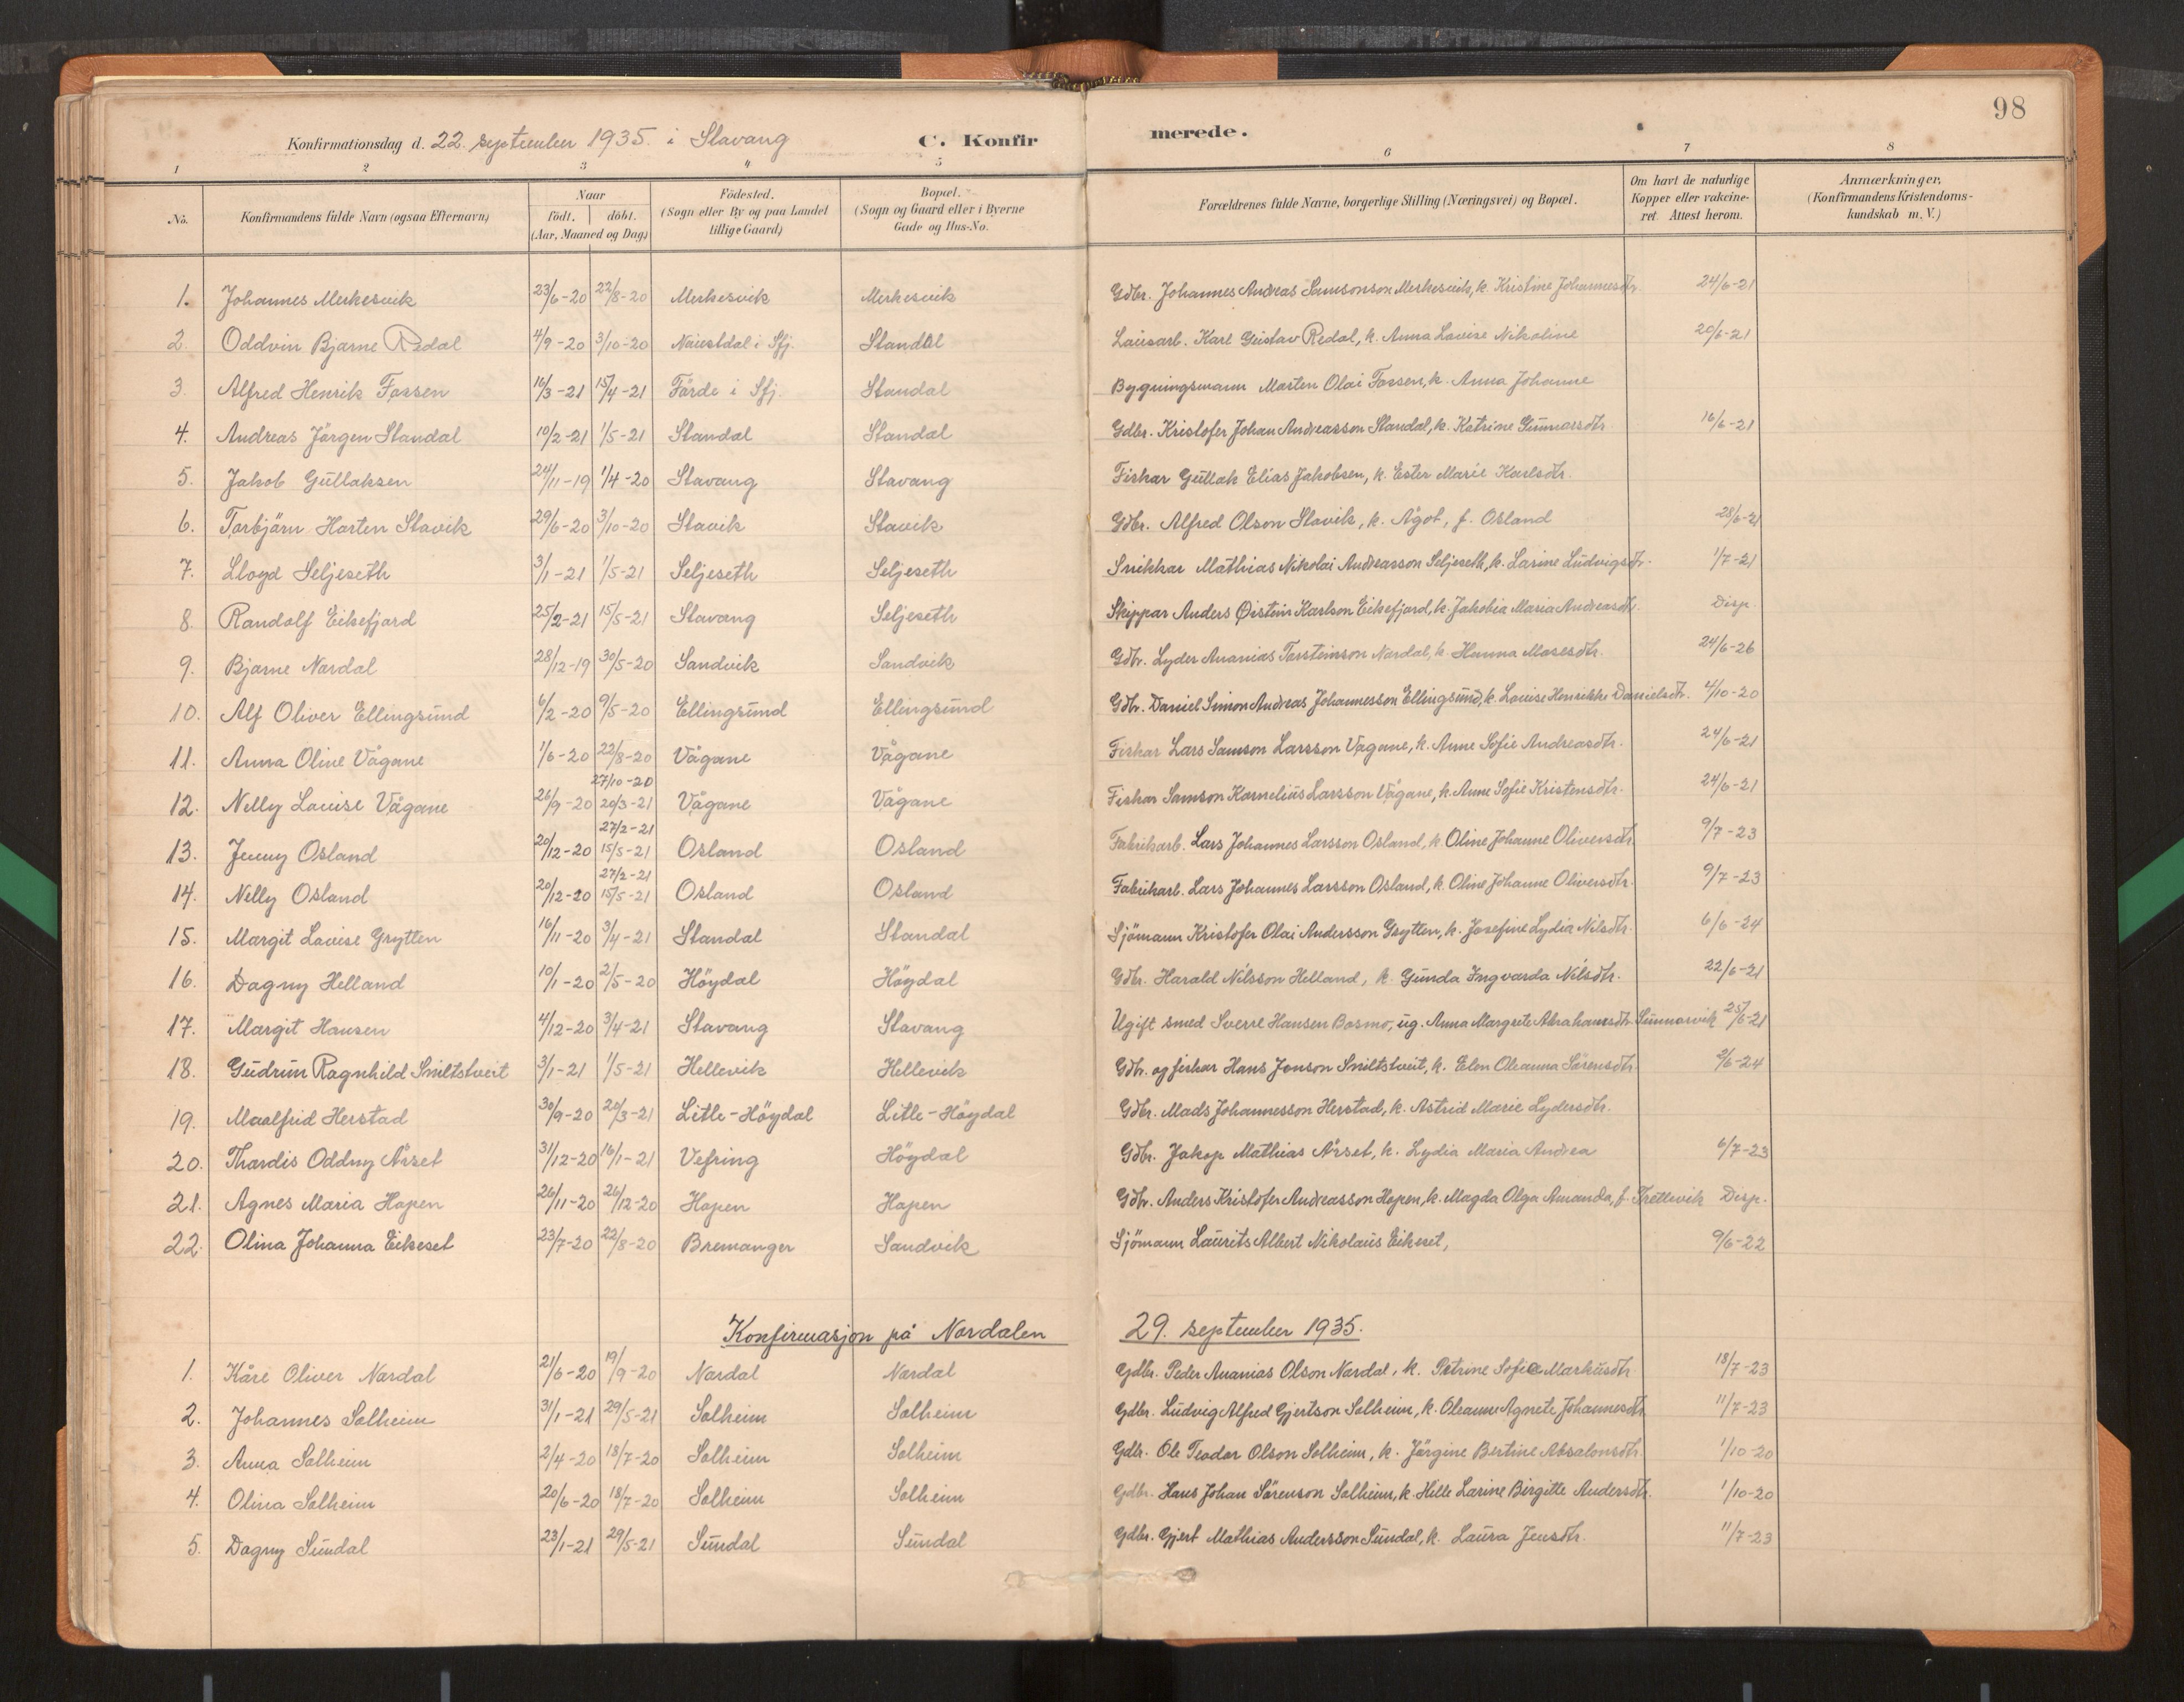 98
Konfirmationsdag d. 22. september 1935. i Stavang C. Konfirmerede.
1 2 3 " 5 6 7 8
No. Konfirmandens fulde Navn (ogsaa Efternavn) Naar födt. döbt. (Aar, Maaned og Dag) Födested. (Sogn eller By og paa Landet tillige Gaard) Bopæl. (Sogn og Gaard eller i Byerne Gade og Hus-No. Forældrenes fulde Navne, borgerlige Stilling (Næringsvei) og Bopæl. Om havt de naturlige Kopper eller vakcineret. Attest herom. Anmærkninger, (Konfirmandens Kristendomskundskab m. V.)
1. Johannes Merkesvik 23/6-20 22/8-20 Merkesvik Merkesvik Gdbr. Johannes Andreas Samsonson Merkesvik, k. Kristine Johannesdtr. 24/6-21
2. Oddvin Bjarne Redal 4/9-20 3/10-20 Naustdal i Sfj. Standal Lausarb. Karl Gustav Redal, k. Anna Lovise Nikoline 20/6-21
3. Alfred Henrik Fossen 16/3-21 15/4-21 Förde i Sfj. Standal Bygningsmann Marten Olai Fossen, k. Anna Johanne
4. Andreas Jörgen Standal 10/2-21 1/5-21 Standal Standal Gdbr. Kristofer Johan Andreasson Standal, k. Katrine Gunnarsdtr. 16/6-21
5. Jakob Gullaksen 24/11-19 1/4-20 Stavang Stavang Fiskar Gullak Elias Jakobsen, k. Ester Marie Karlsdtr.
6. Torbjörn Horten Stavik 29/6-20 3/10-20 Stavik Stavik Gdbr. Alfred Olson Stavik, k. Ågot, f. Osland 28/6-21
7. Lloyd Seljeseth 3/1-21 1/5-21 Seljeseth Seljeseth Snikkar Mathias Nikolai Andreasson Seljeseth, k. Larine Ludvigsdtr. 1/7-21
8. Randolf Eikefjord 25/2-21 15/5-21 Stavang Seljeseth Skippar Anders Øistein Karlson Eikefjord, k. Jakobia Maria Andreasdtr. Disp.
9. Bjarne Nordal 28/12-19 30/5-20 Sandvik Sandvik Gdbr. Lyder Ananias Torsteinson Nordal, k. Hanna Mosesdtr. 24/6-26
10. Alf Oliver Ellingsund 6/2-20 9/5-20 Ellingsund Ellingsund Gdbr. Daniel Simon Andreas Johannesson Ellingsund, k. Lovise Henrikke Danielsdtr. 4/10-20
11. Anna Oline Vågane 1/6-20 22/8-20 Vågane Vågane Fiskar Lars Samson Larsson Vågane, k. Anne Sofie Andreasdtr. 24/6-21
12. Nelly Lovise Vågane 26/9-20 27/10-20 20/3-21 Vågane Vågane Fiskar Samson Kornelius Larsson Vågane, k. Anne Sofie Kristensdtr. 24/6-21
13. Jenny Osland 20/12-20 27/2-21 15/5-21 Osland Osland Fabrikarb. Lars Johannes Larsson Osland, k. Oline Johanne Oliversdtr. 9/7-23
14. Nelly Osland 20/12-20 27/2-21 15/5-21 Osland Osland Fabrikarb. Lars Johannes Larsson Osland, k. Oline Johanne Oliversdtr. 9/7-23
15. Margit Lovise Grytten 16/11-20 3/4-21 Standal Standal Sjömann Kristofer Olai Andersson Grytten, k. Josefine Lydia Nilsdtr. 6/6-24
16. Dagny Helland 10/1-20 2/5-20 Höydal Höydal Gdbr. Harald Nilsson Helland, k. Gunda Ingvarda Nilsdtr. 22/6-21
17. Margit Hansen 4/12-20 3/4-21 Stavang Stavang Ugift smed Sverre Hansen Bosmo, ug. Anna Margrete Abrahamsdtr. Sunnarvik 25/6-21
18. Gudrun Ragnhild Smiltstveit 3/1-21 1/5-21 Hellevik Hellevik Gdbr. og fiskar Hans Jonson Smiltstveit, k. Elen Oleanna Sörensdtr. 2/6-24
19. Maalfrid Herstad 30/9-20 20/3-21 Litle-Höydal Litle-Höydal Gdbr. Mads Johannesson Herstad, k. Astrid Marie Lydersdtr.
20. Thordis Oddny Årset 31/12-20 16/1-21 Vefring Höydal Gdbr. Jakop Mathias Årset, k. Lydia Maria Andrea 6/7-23
21. Agnes Maria Hopen 26/11-20 26/12-20 Hopen Hopen Gdbr. Anders Kristofer Andreasson Hopen, k. Magda Olga Amanda, f. Trettevik Disp.
22. Olina Johanna Eikeset 23/7-20 22/8-20 Bremanger Sandvik Sjömann Laurits Albert Nikolaus Eikeset, 9/6-22
Konfirmasjon på Nordalen 29. september 1935.
1. Kåre Oliver Nordal 21/6-20 19/9-20 Nordal Nordal Gdbr. Peder Ananias Olson Nordal, k. Petrine Sofie Markusdtr. 18/7-23
2. Johannes Solheim 31/1-21 29/5-21 Solheim Solheim Gdbr. Ludvig Alfred Gjertson Solheim, k. Oleanne Agnete Johannesdtr. 11/7-23
3. Anna Solheim 2/4-20 18/7-20 Solheim Solheim Gdbr. Ole Teodor Olson Solheim, k. Jörgine Bertine Absalonsdtr. 1/10-20
4. Olina Solheim 20/6-20 18/7-20 Solheim Solheim Gdbr. Hans Johan Sörenson Solheim, k. Hille Larine Birgitte Andersdtr. 1/10-20
5. Dagny Sundal 23/1-21 29/5-21 Sundal Sundal Gdbr. Gjert Mathias Andersson Sundal, k. Laura Jensdtr. 11/7-23